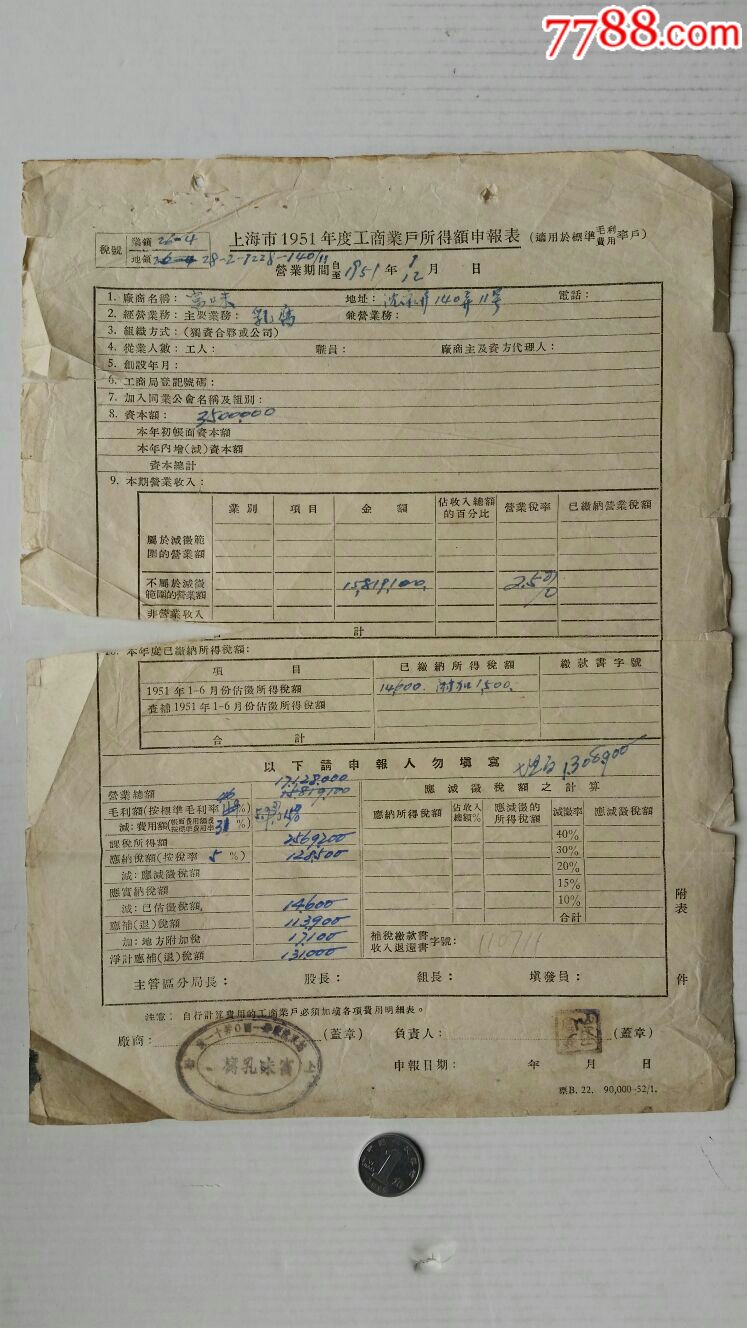 7788.com
上海市1951年度工商業戶所得額申報表 (適用於標準毛利費用率戶)
稅號 業領 26-4
地領 26-4 28-2-9228-140/11
營業期間 自至 1951年 1 12 月 日
1. 廠商名稱: 富味 地址: 140弄11号 電話:
2. 經營業務: 主要業務: 乳腐 兼營業務:
3. 組織方式: (獨資合夥或公司)
4. 從業人數: 工人: 職員: 廠商主及資方代理人:
5. 創設年月:
6. 工商局登記號碼:
7. 加入同業公會名稱及組別:
8. 資本額: 3500,000
本年初帳面資本額
本年內增(減)資本額
資本總計
9. 本期營業收入:
業別 項目 金額 佔收入總額的百分比 營業稅率 已繳納營業稅額
屬於減徵範圍的營業額
不屬於減徵範圍的營業額 15,819,100. 2.5%
非營業收入
計
本年度已繳納所得稅額:
項目 已繳納所得稅額 繳款書字號
1951年1-6月份估徵所得稅額 14,600. 附加1,500.
查補1951年1-6月份估徵所得稅額
合計
以下請申報人勿填寫 1,308,900
17,128,000
營業總額 15,819,100
毛利額(按標準毛利率 46 %)
減:費用額(帳面費用額或按標準費用率 31 %) 15%
課稅所得額 2569,200
應納稅額(按稅率 5 %) 128,500
減:應減徵稅額
應實納稅額
減:已估徵稅額 14,600
應補(退)稅額 113,900
加:地方附加稅 17,100
淨計應補(退)稅額 131,000
應減徵稅額之計算
應納所得稅額 佔收入總額% 應減徵的所得稅額 減徵率 應減徵稅額
40%
30%
20%
15%
10%
合計
補稅繳款書收入退還書 字號: 110711
附表 件
主管區分局長: 股長: 組長: 填發員:
注意: 自行計算費用的工商業戶必須加填各項費用明細表。
廠商: (蓋章) 負責人: (蓋章)
上 富味乳腐
申報日期: 年 月 日
票B. 22. 90,000-52/1.
1